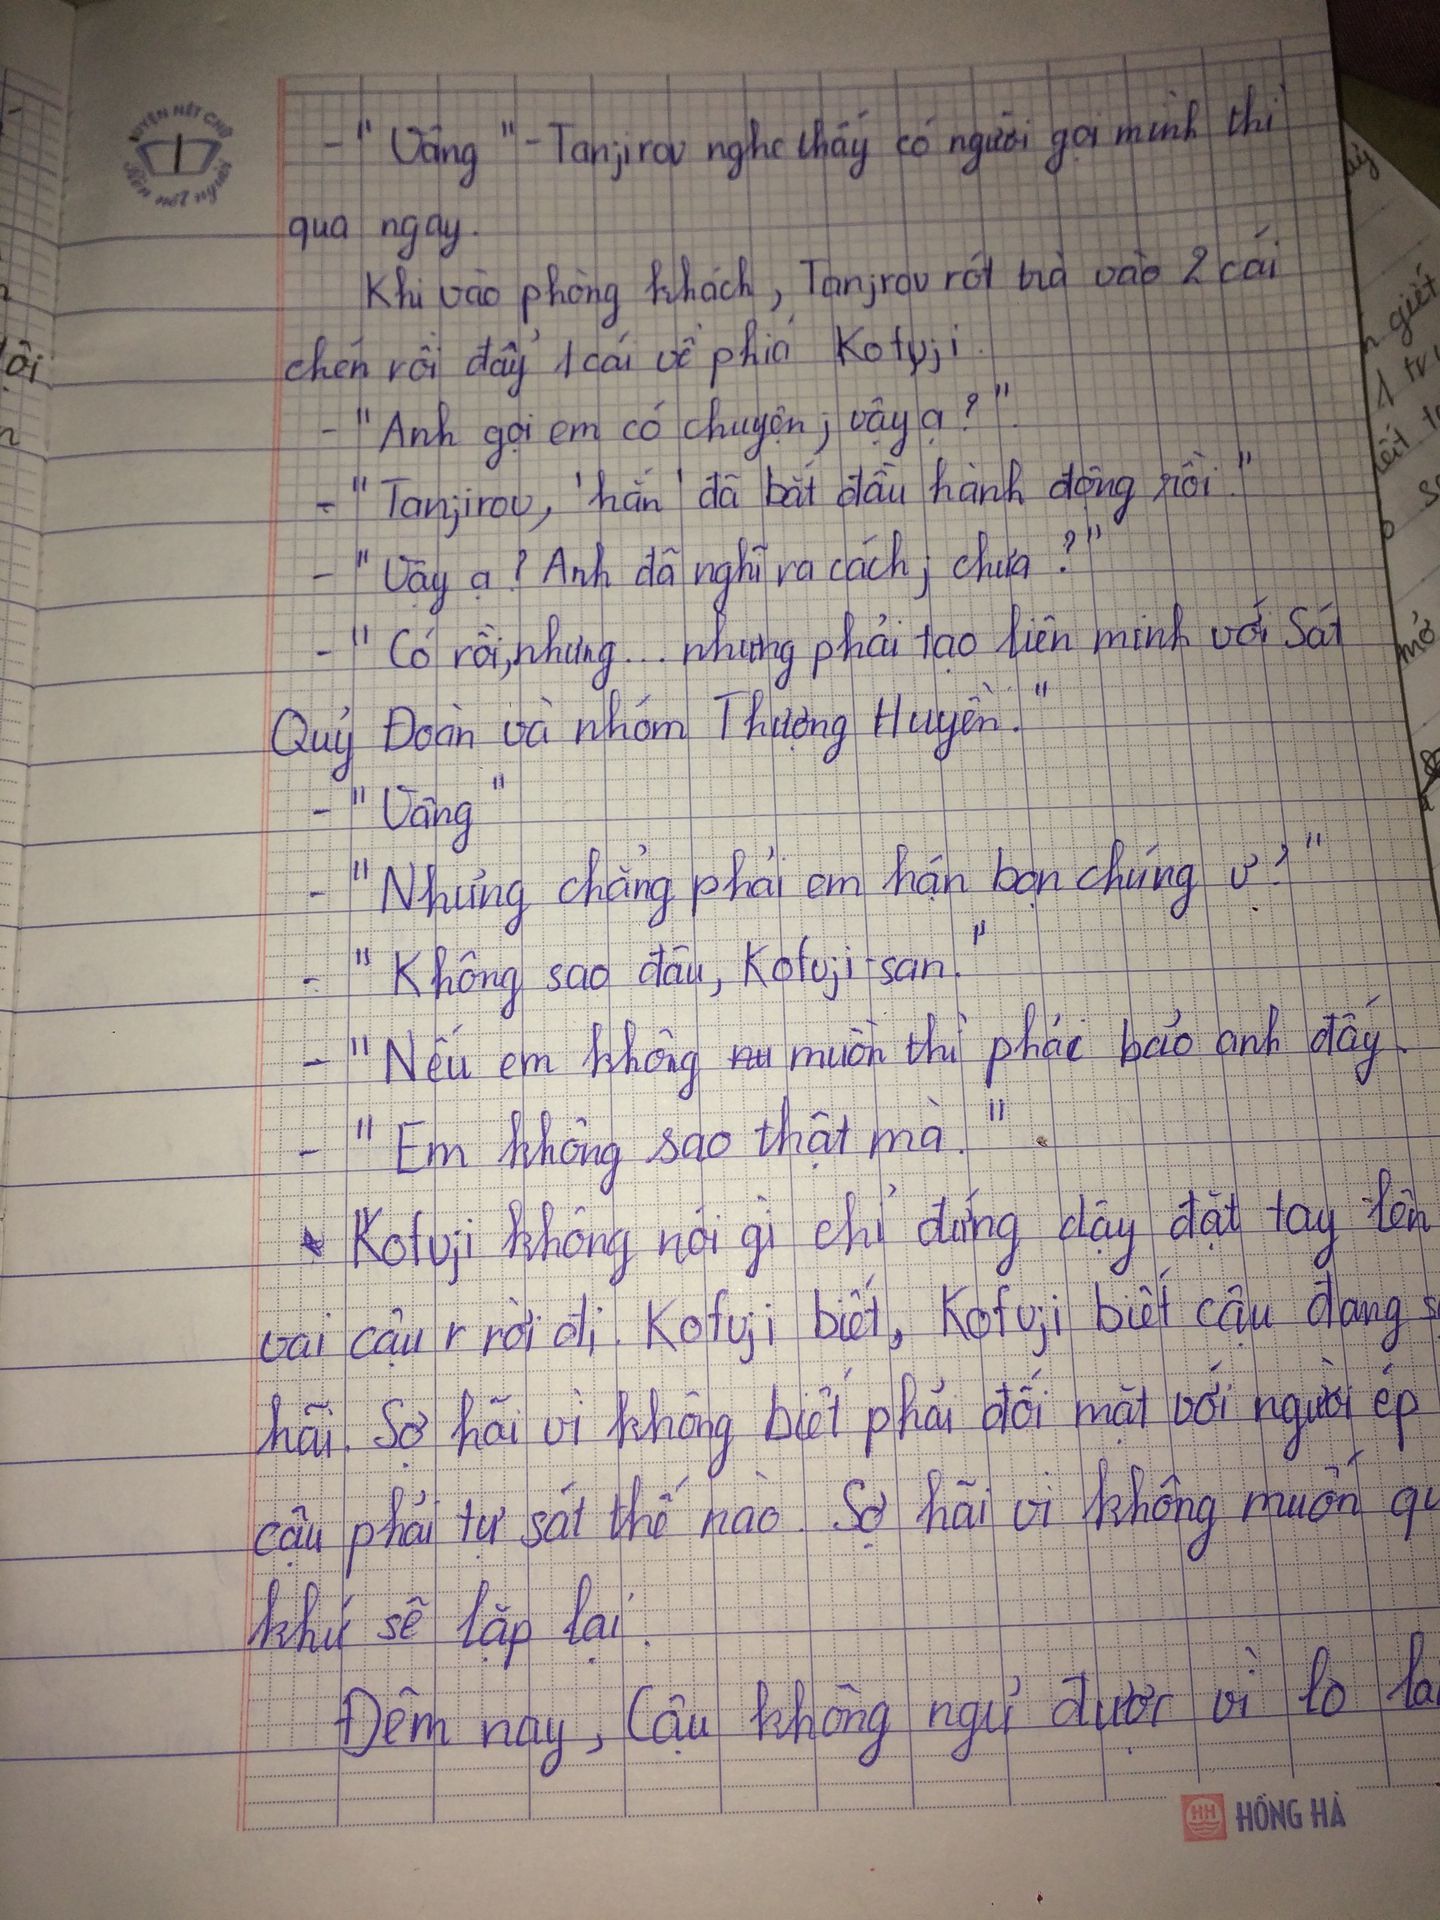 LUYỆN NÉT CHỮ
- "Vâng" - Tanjirou nghe thấy có người gọi mình thì
qua ngay.
Khi vào phòng khách, Tanjrou rót trà vào 2 cái
chén rồi đẩy 1 cái về phía Kofuji.
- "Anh gọi em có chuyện j vậy ạ?".
- "Tanjirou, 'hắn' đã bắt đầu hành động rồi."
- "Vậy ạ? Anh đã nghĩ ra cách j chưa?"
- "Có rồi, nhưng... nhưng phải tạo liên minh với Sát
Quỷ Đoàn và nhóm Thượng Huyền."
- "Vâng"
- "Nhưng chẳng phải em hận bọn chúng ư?"
- "Không sao đâu, Kofuji-san."
- "Nếu em không muốn thì phải bảo anh đấy.
- "Em không sao thật mà."
Kofuji không nói gì chỉ đứng dậy đặt tay lên
vai cậu r rời đi. Kofuji biết, Kofuji biết cậu đang
hãi. Sợ hãi vì không biết phải đối mặt với người ép
cậu phải tự sát thế nào. Sợ hãi vì không muốn
khứ sẽ lặp lại.
Đêm nay, Cậu không ngủ được vì lo
HH HỒNG HÀ